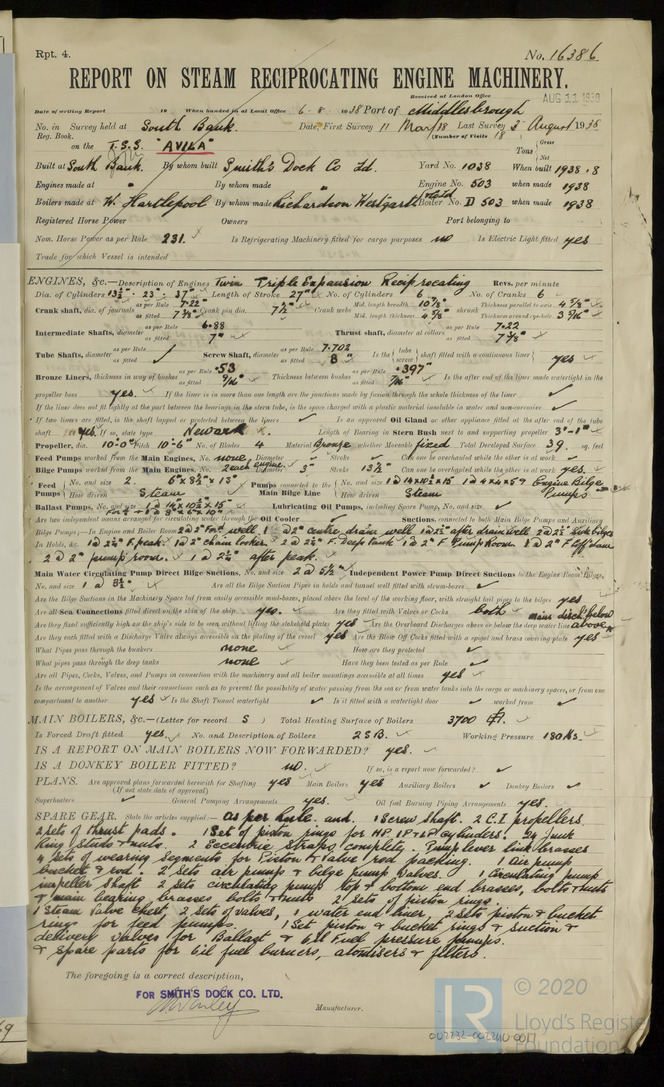 Rpt. 4. No. 16386
REPORT ON STEAM RECIPROCATING ENGINE MACHINERY.
Received at London Office
AUG 11 1938
Date of writing Report 19 When handed in at Local Office 6 - 8 1938 Port of Middlesbrough
No. in Survey held at South Bank. Date, First Survey 11 Mar/38 Last Survey 3 August 1938
Reg. Book. (Number of Visits 18
on the T.S.S. "AVILA" Tons Gross Net
Built at South Bank. By whom built Smith's Dock Co Ltd. Yard No. 1038 When built 1938.8
Engines made at " By whom made " Engine No. 503 when made 1938
Boilers made at W. Hartlepool By whom made Richardson Westgarth Boiler No. D 503 when made 1938
Registered Horse Power Owners Port belonging to
Nom. Horse Power as per Rule 231. Is Refrigerating Machinery fitted for cargo purposes no Is Electric Light fitted yes
Trade for which Vessel is intended
ENGINES, &c.—Description of Engines Twin Triple Expansion Reciprocating Revs. per minute
Dia. of Cylinders 13½" - 23" - 37" Length of Stroke 27" No. of Cylinders 6 No. of Cranks 6
Crank shaft, dia. of journals as per Rule 7.22 as fitted 7⅜" Crank pin dia. 7½" Crank webs Mid. length breadth 10⅞" Mid. length thickness 4⅝" shrunk Thickness parallel to axis 4⅝" Thickness around eyehole 3 5/16"
Intermediate Shafts, diameter as per Rule 6.88 as fitted 7" Thrust shaft, diameter at collars as per Rule 7.22 as fitted 7⅜"
Tube Shafts, diameter as per Rule as fitted Screw Shaft, diameter as per Rule 7.702 as fitted 8" Is the tube screw shaft fitted with a continuous liner yes
Bronze Liners, thickness in way of bushes as per Rule .53 as fitted 9/16" Thickness between bushes as per Rule .397 as fitted 7/16" Is the after end of the liner made watertight in the
propeller boss yes. If the liner is in more than one length are the junctions made by fusion through the whole thickness of the liner
If the liner does not fit tightly at the part between the bearings in the stern tube, is the space charged with a plastic material insoluble in water and non-corrosive
If two liners are fitted, is the shaft lapped or protected between the liners Is an approved Oil Gland or other appliance fitted at the after end of the tube
shaft yes. If so, state type Newark Length of Bearing in Stern Bush next to and supporting propeller 3'-1"
Propeller, dia. 10'-0" Pitch 10'-6" No. of Blades 4 Material Bronze whether Moveable fixed Total Developed Surface 39 sq. feet
Feed Pumps worked from the Main Engines, No. none Diameter Stroke Can one be overhauled while the other is at work
Bilge Pumps worked from the Main Engines, No. 2 each engine Diameter 3" Stroke 13½" Can one be overhauled while the other is at work yes.
Feed Pumps No. and size 2. 6" x 8½" x 13" How driven Steam Pumps connected to the Main Bilge Line No. and size How driven Steam Engine Bilge Pumps
Ballast Pumps, No. and size Lubricating Oil Pumps, including Spare Pump, No. and size
Are two independent means arranged for circulating water through the Oil Cooler Suctions, connected to both Main Bilge Pumps and Auxiliary
Bilge Pumps;—In Engine and Boiler Room
In Holds, &c.
2 @ 2" pump room. 1 @ 2½" after peak.
Main Water Circulating Pump Direct Bilge Suctions, No. and size 2 @ 5½" Independent Power Pump Direct Suctions to the Engine Room Bilges,
No. and size Are all the Bilge Suction Pipes in holds and tunnel well fitted with strum-boxes
Are the Bilge Suctions in the Machinery Space led from easily accessible mud-boxes, placed above the level of the working floor, with straight tail pipes to the bilges yes
Are all Sea Connections fitted direct on the skin of the ship yes. Are they fitted with Valves or Cocks both
Are they fixed sufficiently high on the ship's side to be seen without lifting the stokehold plates yes Are the Overboard Discharges above or below the deep water line main disch. below above
Are they each fitted with a Discharge Valve always accessible on the plating of the vessel yes Are the Blow Off Cocks fitted with a spigot and brass covering plate yes
What Pipes pass through the bunkers none How are they protected
What pipes pass through the deep tanks none Have they been tested as per Rule
Are all Pipes, Cocks, Valves, and Pumps in connection with the machinery and all boiler mountings accessible at all times yes
Is the arrangement of Valves and their connections such as to prevent the possibility of water passing from the sea or from water tanks into the cargo or machinery spaces, or from one
compartment to another yes Is the Shaft Tunnel watertight Is it fitted with a watertight door worked from
MAIN BOILERS, &c.—(Letter for record S) Total Heating Surface of Boilers 3700
Is Forced Draft fitted yes. No. and Description of Boilers 2 S B. Working Pressure 180 lbs
IS A REPORT ON MAIN BOILERS NOW FORWARDED? yes.
IS A DONKEY BOILER FITTED? no. If so, is a report now forwarded?
PLANS. Are approved plans forwarded herewith for Shafting yes Main Boilers yes Auxiliary Boilers Donkey Boilers
(If not state date of approval)
Superheaters General Pumping Arrangements yes. Oil fuel Burning Piping Arrangements yes.
SPARE GEAR. State the articles supplied:— As per Rule. and. 1 Screw Shaft. 2 C.I propellers.
2 sets of thrust pads. 1 Set of piston rings for HP. IP & LP cylinders. 24 Junk
Ring studs & nuts. 2 Eccentric straps complete. Pump lever link brasses
4 sets of wearing segments for Piston & Valve rod packing. 1 Air pump
bucket & rod. 2 Sets air pump & bilge pump valves. 1 Circulating pump
impeller shaft 2 sets circulating pump top & bottom end brasses, bolts & nuts
& main bearing brasses bolts & nuts 2 Sets of piston rings.
1 Steam Valve Chest, 2 sets of valves, 1 water end liner, 2 sets piston & bucket
rings for feed pumps. 1 Set piston & bucket rings & suction &
delivery valves for Ballast & Oil Fuel pressure pumps.
& spare parts for Oil fuel burners, atomisers & filters.
The foregoing is a correct description,
FOR SMITH'S DOCK CO. LTD.
Manufacturer.
© 2020
Lloyd's Register
Foundation
002232-002240-0017